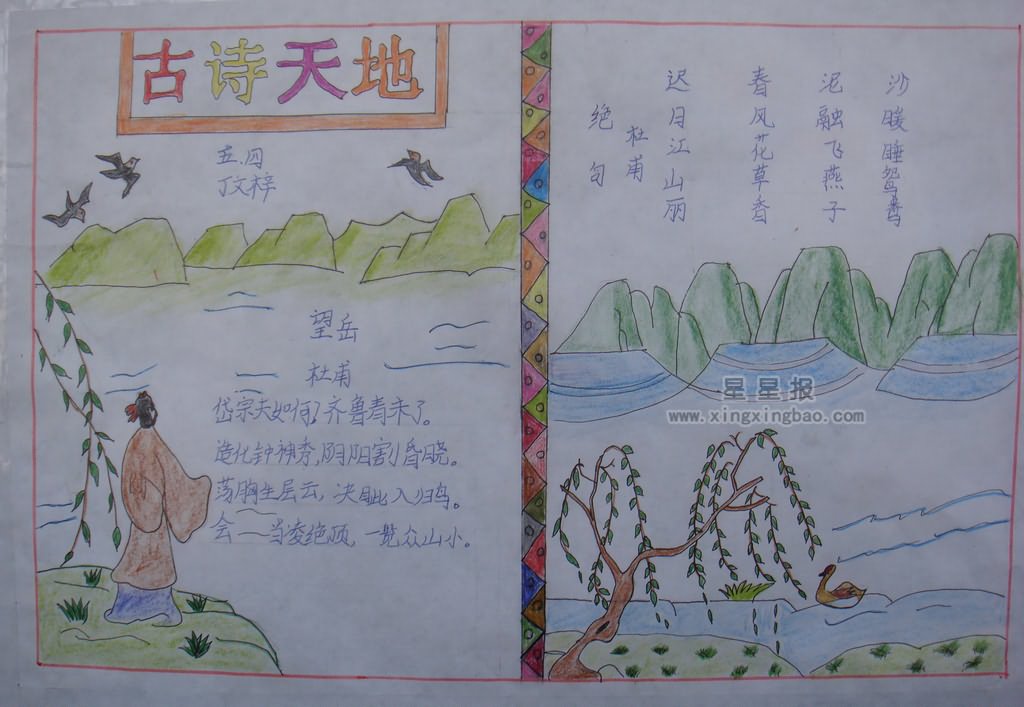 古诗天地
五.四
丁文梓
望岳
杜甫
岱宗夫如何？齐鲁青未了。
造化钟神秀，阴阳割昏晓。
荡胸生层云，决眦入归鸟。
会一当凌绝顶，一览众山小。
沙暖睡鸳鸯
泥融飞燕子
春风花草香
迟日江山丽
杜甫
绝句
星星报
www.xingxingbao.com